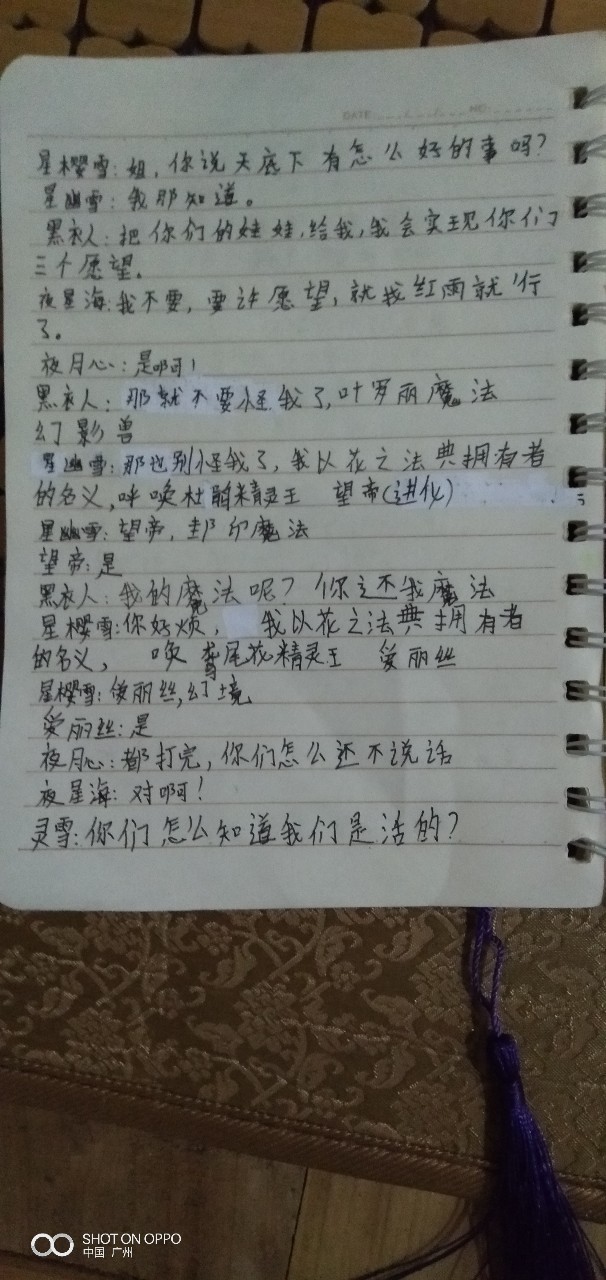 DATE NO
星樱雪:姐,你说天底下有怎么好的事吗?
星幽雪:我那知道。
黑衣人:把你们的娃娃,给我,我会实现你们
三个愿望。
夜星海:我不要,要许愿望,就找红雨就行
了。
夜月心:是啊!
黑衣人:那就不要怪我了,叶罗丽魔法
幻影兽
星幽雪:那也别怪我了,我以花之法典拥有者
的名义,呼唤杜鹃精灵王 望帝(进化)
星幽雪:望帝,封印魔法
望帝:是
黑衣人:我的魔法呢?你还我魔法
星樱雪:你好烦, 我以花之法典拥有者
的名义, 唤鸢尾花精灵王 爱丽丝
星樱雪:爱丽丝,幻境
爱丽丝:是
夜月心:都打完,你们怎么还不说话
夜星海:对啊!
灵雪:你们怎么知道我们是活的?
SHOT ON OPPO
中国 广州